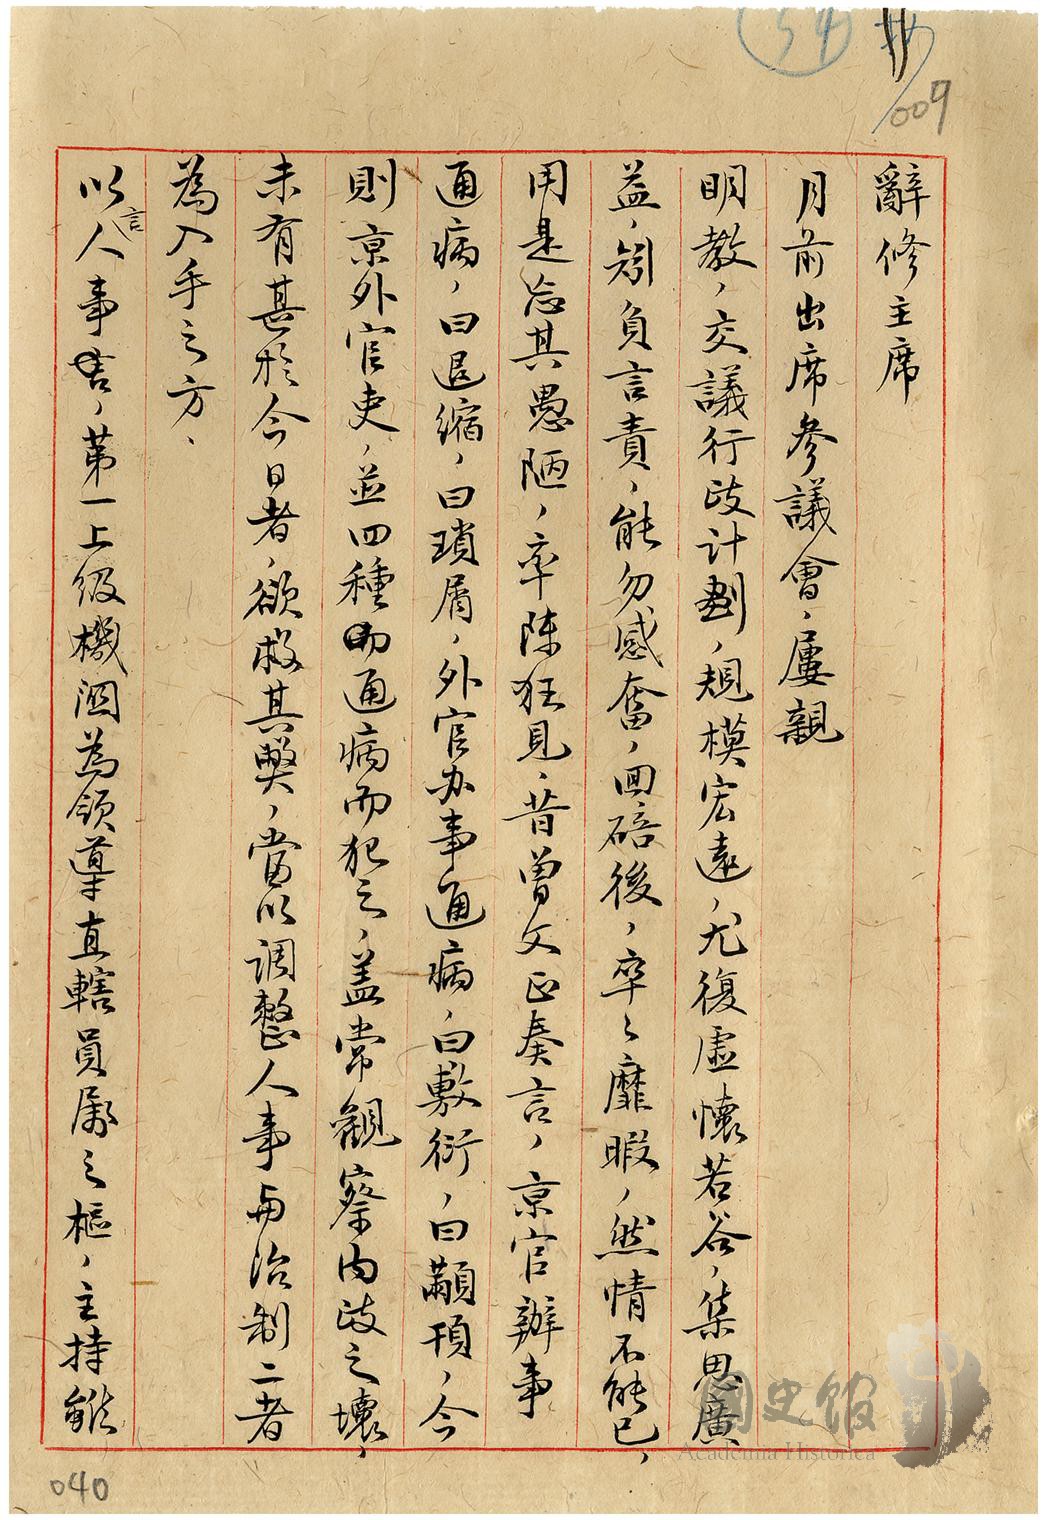 54 抄
009
辭修主席
月前出席參議會，屢親
明教，交議行政計劃，規模宏遠，尤復虛懷若谷，集思廣
益，矧負言責，能勿感奮，回碚後，卒々靡暇，然情不能已，
用是忘其愚陋，率陳狂見，昔曾文正奏言，京官辦事
通病，曰退縮，曰瑣屑，外官办事通病，曰敷衍，曰顢頇，今
則京外官吏，並四種通病而犯之，蓋常觀察內政之壞，
未有甚於今日者，欲救其弊，當以調整人事與治制二者
為入手之方、
以言人事，第一上級機關為領導直轄員屬之樞，主持
040
國史館
Academia Historica